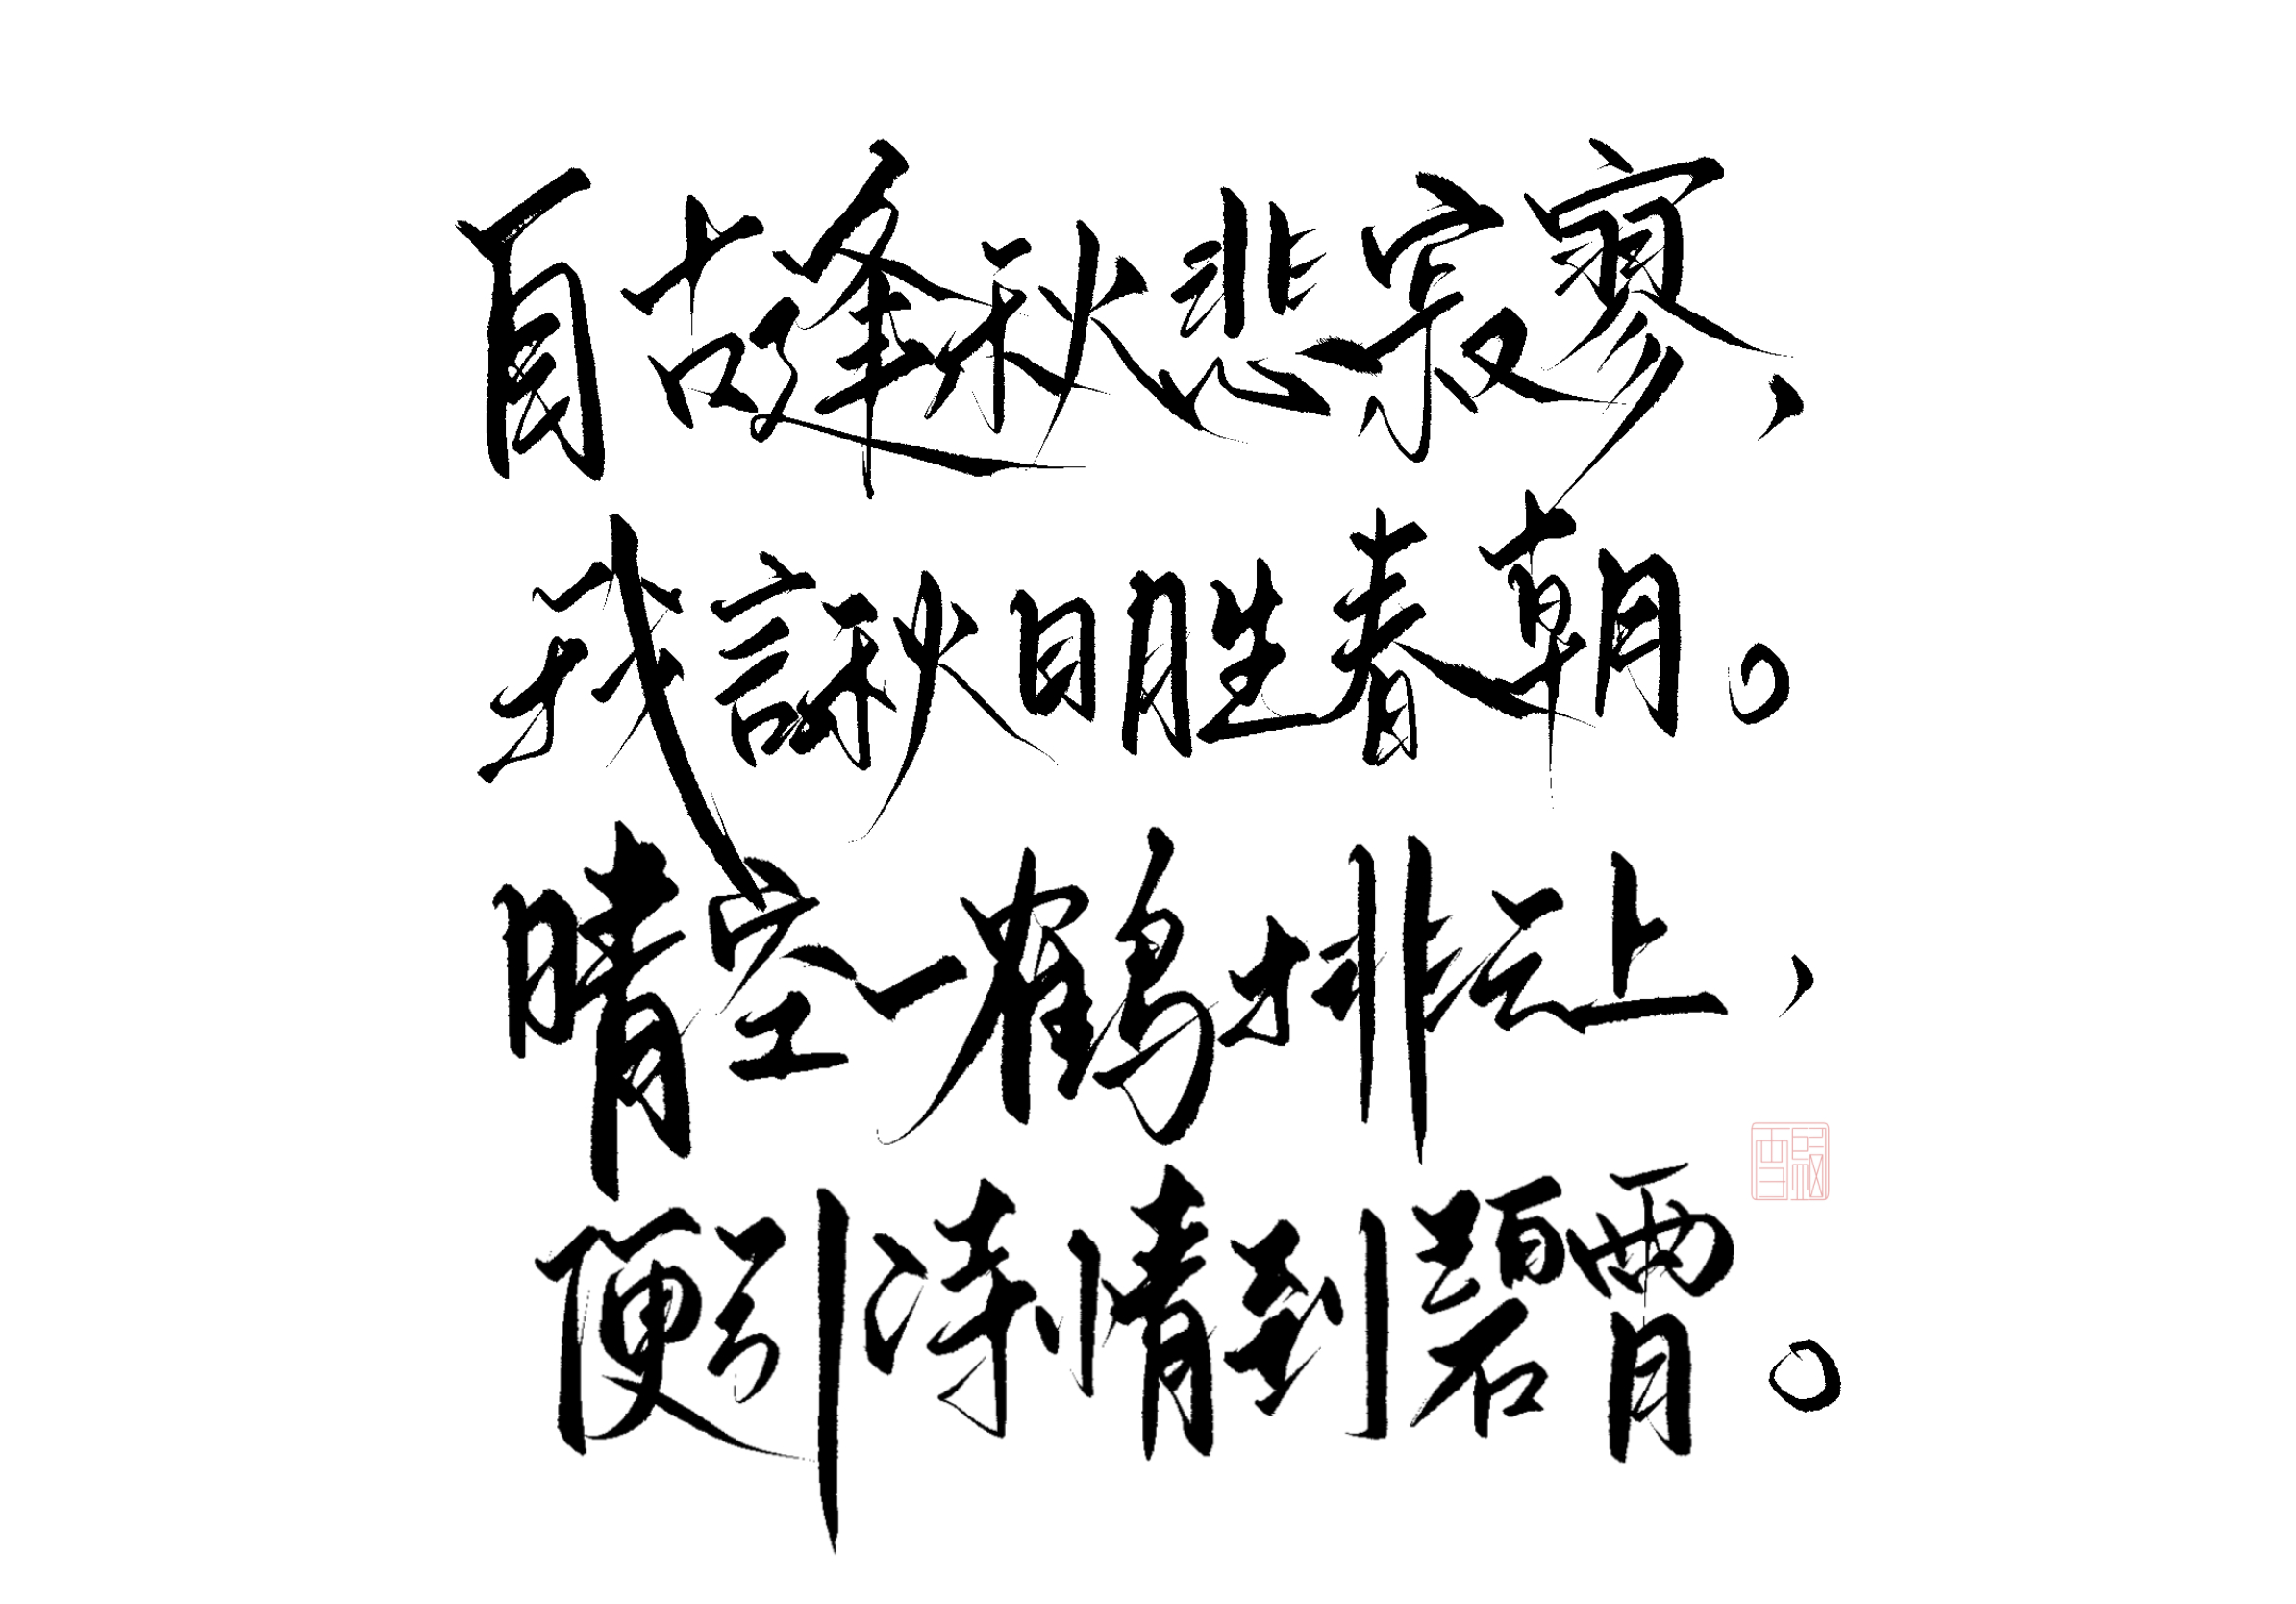 自古逢秋悲寂寥，
我言秋日胜春朝。
晴空一鹤排云上，
便引诗情到碧霄。